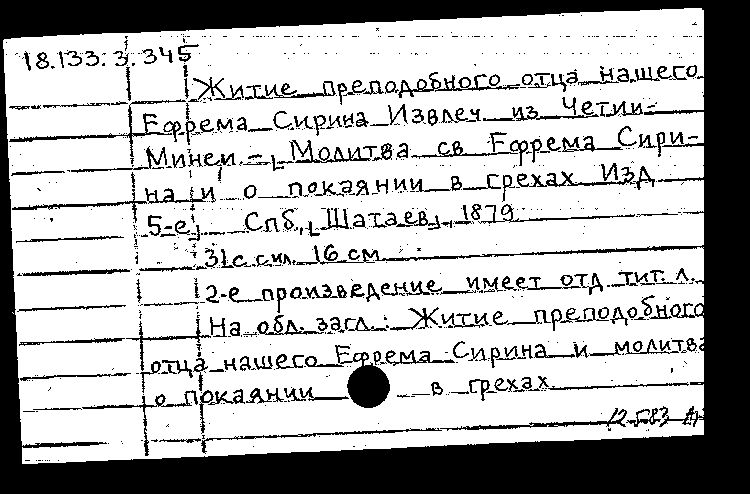 18.133.3.345
Житие преподобного отца нашего
Ефрема Сирина Извлеч из Четии-
Минеи. – Молитва св Ефрема Сири-
на и о покаянии в грехах Изд
5-е] Спб., [Шатаев], 1879
31 с. с ил. 16 см
2-е произведение имеет отд тит. л.
На обл. загл.: Житие преподобного
отца нашего Ефрема Сирина и молитва
о покаянии в грехах